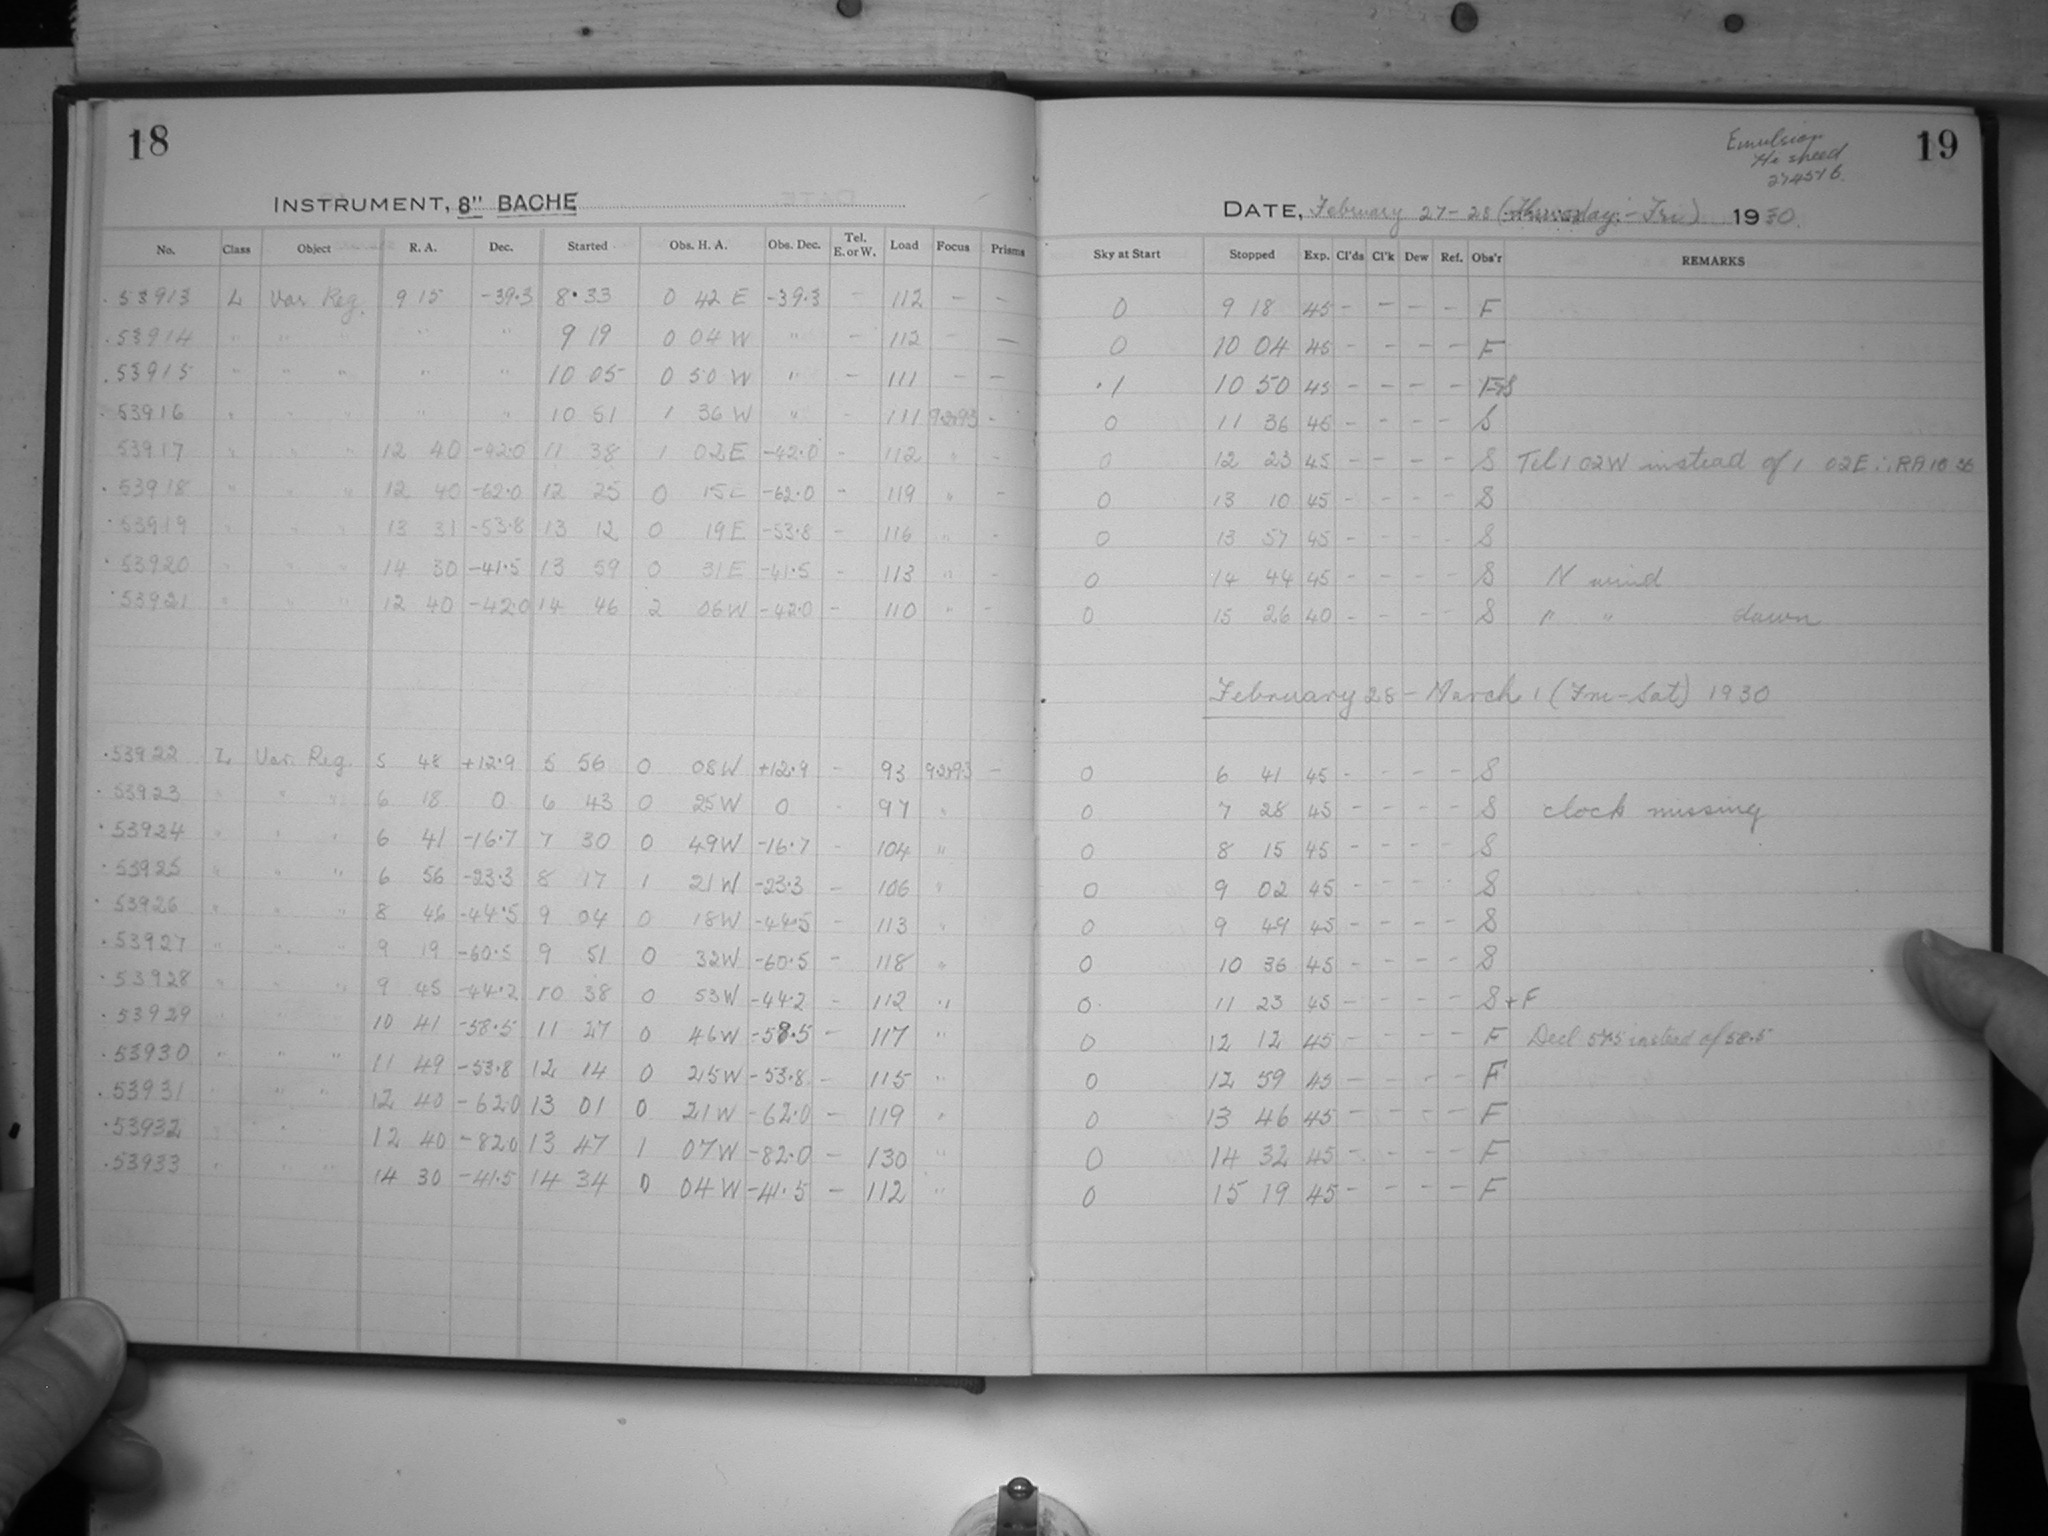 18
INSTRUMENT, 8" BACHE
No. Class Object R. A. Dec. Started Obs. H. A. Obs. Dec. Tel. E. or W. Load Focus Prisms
53913 L Var Reg. 9 15 -39.3 8 33 0 42 E -39.3 - 112 - -
53914 " " " " " 9 19 0 04 W " - 112 - -
53915 " " " " " 10 05 0 50 W " - 111 - -
53916 " " " " " 10 51 1 36 W " - 111 -
53917 " " " 12 40 -42.0 11 38 1 02 E -42.0 - 112 " -
53918 " " " 12 40 -62.0 12 25 0 15 E -62.0 - 119 " -
53919 " " " 13 31 -53.8 13 12 0 19 E -53.8 - 116 " -
53920 " " " 14 30 -41.5 13 59 0 31 E -41.5 - 113 " -
53921 " " " 12 40 -42.0 14 46 2 06 W -42.0 - 110 " -
53922 L Var. Reg. 5 48 +12.9 5 56 0 08 W +12.9 - 93 -
53923 " " " 6 18 0 6 43 0 25 W 0 - 97 "
53924 " " " 6 41 -16.7 7 30 0 49 W -16.7 - 104 "
53925 " " " 6 56 -23.3 8 17 1 21 W -23.3 - 106 "
53926 " " " 8 46 -44.5 9 04 0 18 W -44.5 - 113 "
53927 " " " 9 19 -60.5 9 51 0 32 W -60.5 - 118 "
53928 " " " 9 45 -44.2 10 38 0 53 W -44.2 - 112 "
53929 " " 10 41 -58.5 11 27 0 46 W -58.5 - 117 "
53930 " " " 11 49 -53.8 12 14 0 25 W -53.8 - 115 "
53931 " " " 12 40 -62.0 13 01 0 21 W -62.0 - 119 "
53932 " " 12 40 -82.0 13 47 1 07 W -82.0 - 130 "
53933 " " " 14 30 -41.5 14 34 0 04 W -41.5 - 112 "
19
Emulsion
Hi speed
27457 B
DATE, February 27-28 (Thursday.-Fri) 1930.
Sky at Start Stopped Exp. Cl'ds Cl'k Dew Ref. Obs'r REMARKS
0 9 18 45 - - - - F
0 10 04 45 - - - - F
.1 10 50 45 - - - -
0 11 36 45 - - - - S
0 12 23 45 - - - - S Tel 1 02 W instead of 1 02 E ∴ RA 10 36
0 13 10 45 - - - - S
0 13 57 45 - - - - S
0 14 44 45 - - - - S N wind
0 15 26 40 - - - - S " " dawn
February 28 - March 1 (Fri-Sat) 1930
0 6 41 45 - - - - S
0 7 28 45 - - - - S clock missing
0 8 15 45 - - - - S
0 9 02 45 - - - - S
0 9 49 45 - - - - S
0 10 36 45 - - - - S
0 11 23 45 - - - - S + F
0 12 12 45 - - - - F Decl 57.5 instead of 58.5
0 12 59 45 - - - - F
0 13 46 45 - - - - F
0 14 32 45 - - - - F
0 15 19 45 - - - - F